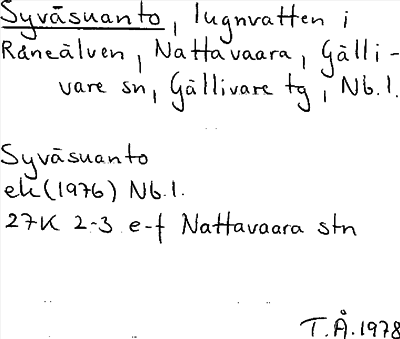 Syväsuanto, lugnvatten i
Råneälven, Nattavaara, Gälli-
vare sn, Gällivare tg, Nb.l.
Syväsuanto
ek (1976) Nb.l.
27K 2-3 e-f Nattavaara stn
T.Å.1978